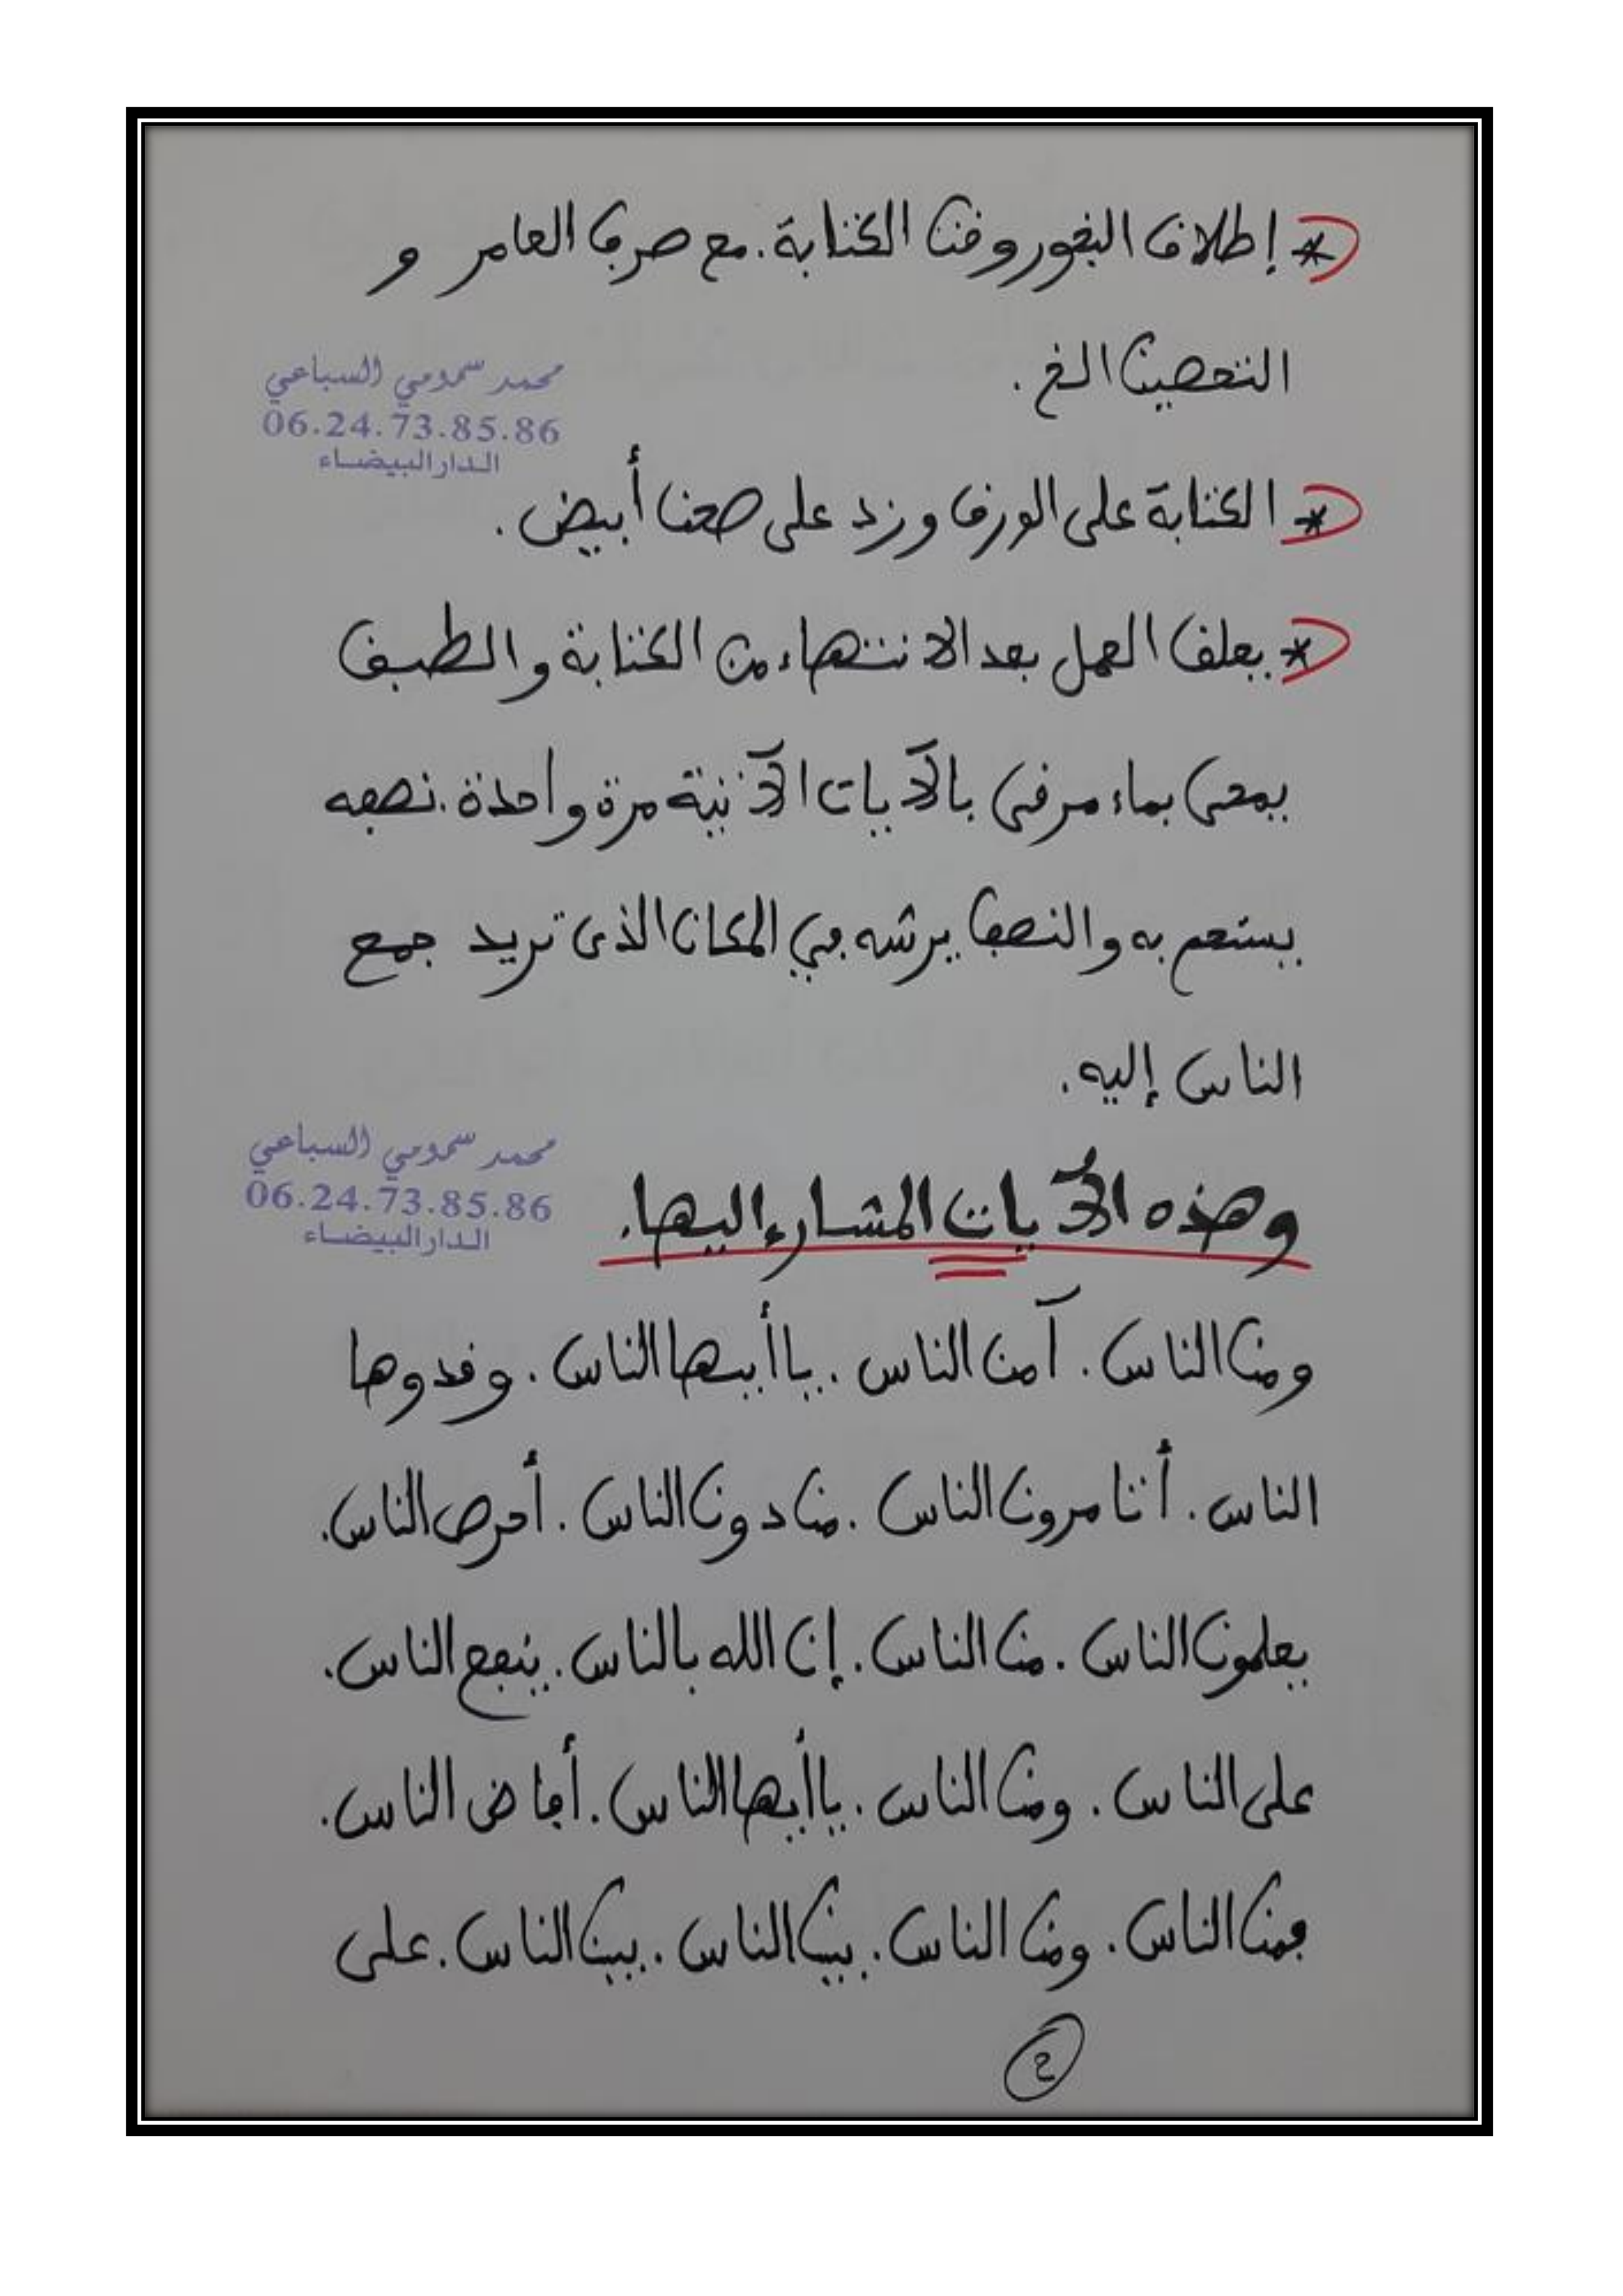 * إطلاق البخور وقت الكتابة. مع صرف العامر و
التحصين الخ .
محمد سمومي السباعي
06.24.73.85.86
الدار البيضاء
* الكتابة على الورق وزد على صحن أبيض .
* يعلق العمل بعد الانتهاء من الكتابة والطبق
يمحى بماء مرقي بالآيات الآتية مرة واحدة. نصفه
يستحم به والنصف يرشه في المكان الذي تريد جمع
الناس إليه.
محمد سمومي السباعي
06.24.73.85.86
الدار البيضاء
وهذه الآيات المشار إليها.
ومن الناس . آمن الناس . يا أيها الناس . وقدوها
الناس . أتامرون الناس . من دون الناس . أحرص الناس.
يعلمون الناس . من الناس . إن الله بالناس . ينفع الناس.
على الناس . ومن الناس . يا أيها الناس . أفاض الناس.
فمن الناس . ومن الناس . بين الناس . بين الناس . على
2